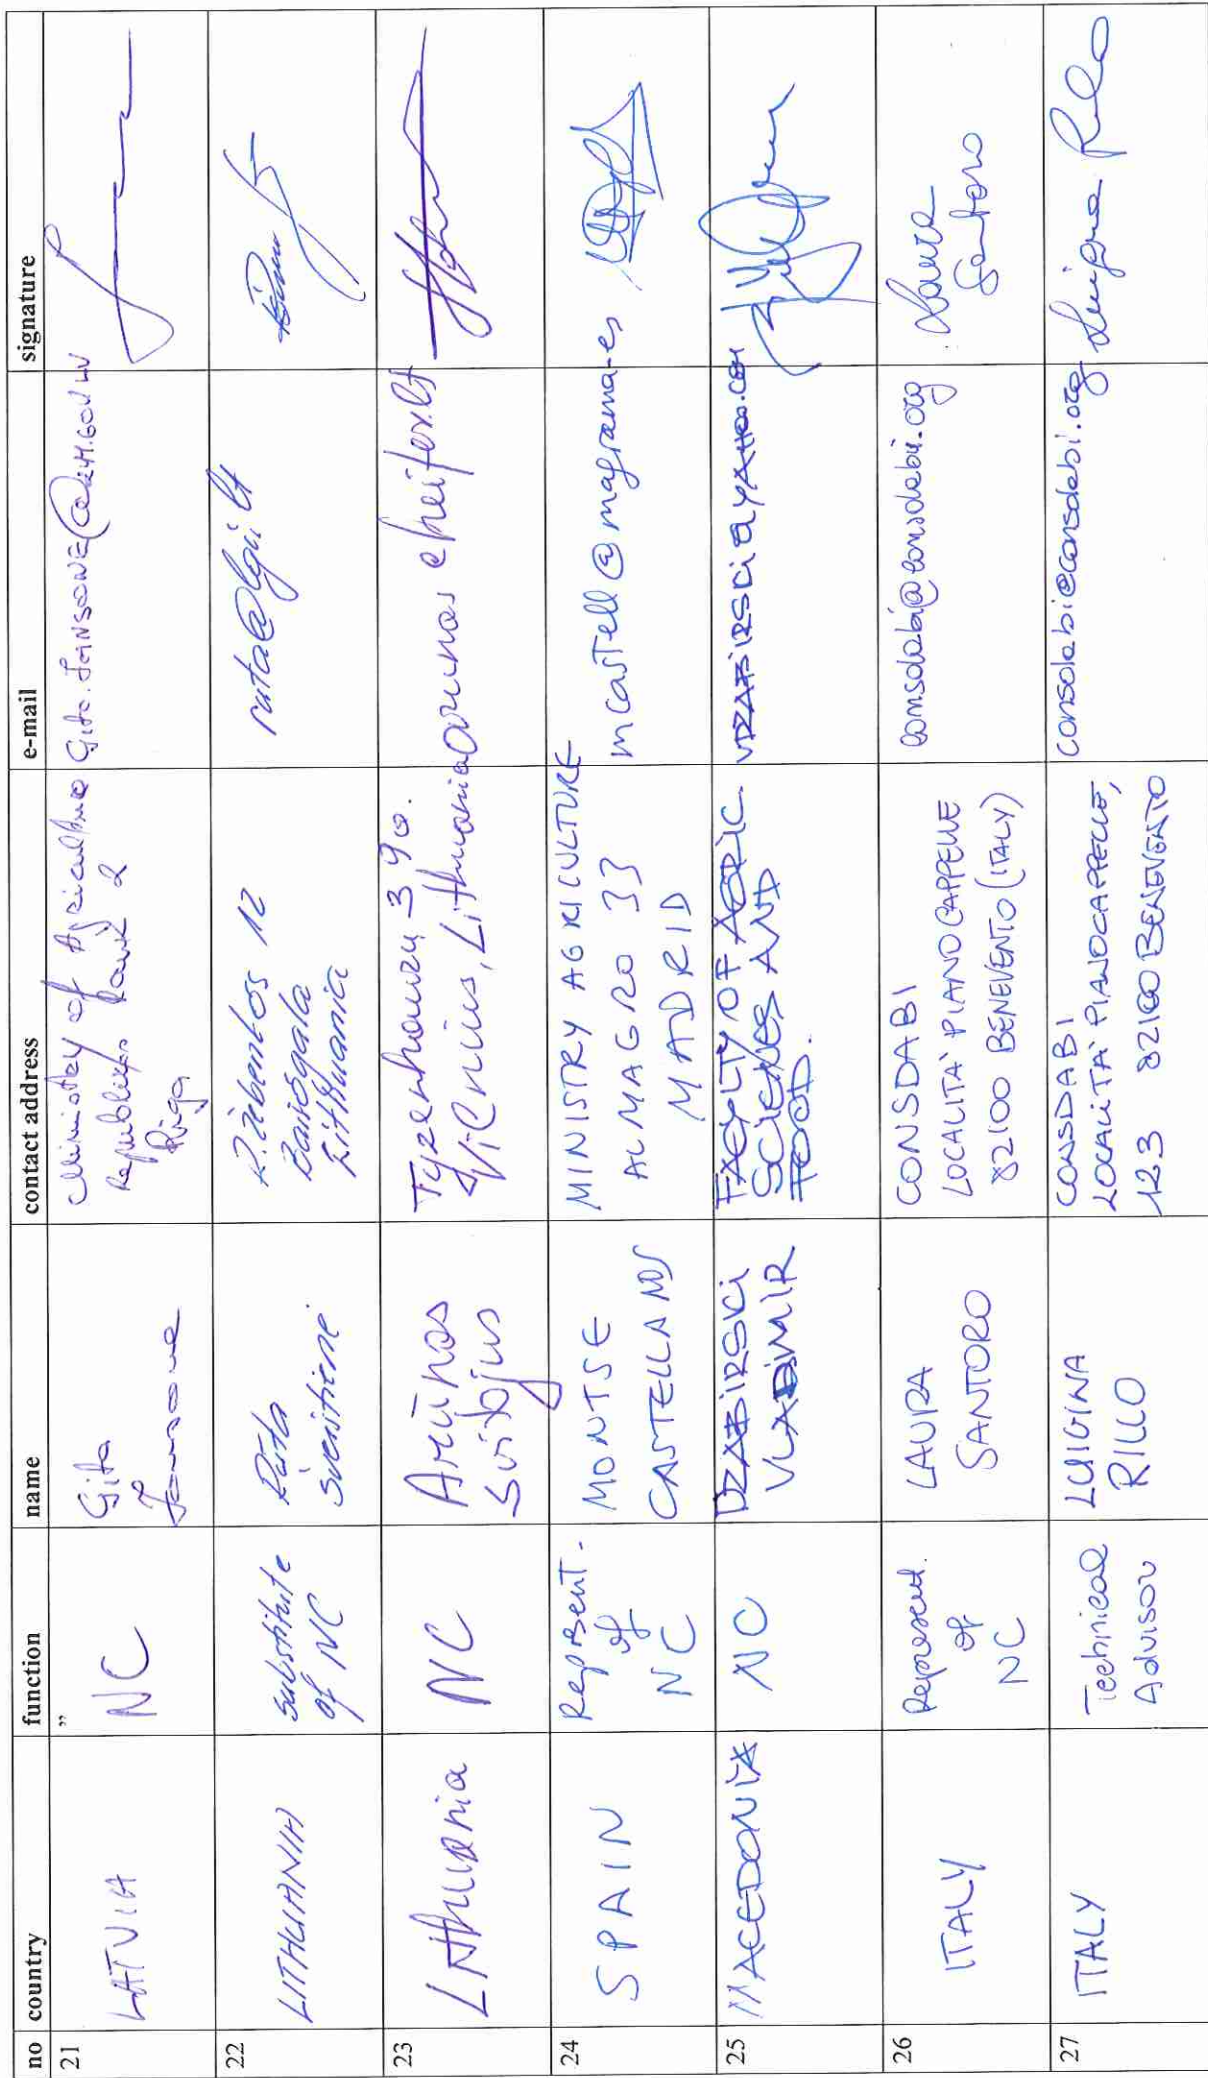 no country function name contact address e-mail signature
21
LATVIA
”
NC
Gita
Jansone
Ministry of Agriculture
Republikas 2
Riga
22
LITHUANIA
substitute
of NC
Rūta
Baisogala
Lithuania
ruta@lgi.lt
23
Lithuania
NC
Arūnas
Svitojus
Vilnius, Lithuania
24
SPAIN
Represent.
of
NC
MONTSE
CASTELLANOS
MINISTRY AGRICULTURE
ALMAGRO 33
MADRID
mcastell@magrama.es
25
MACEDONIA
NC
DZABIRSKI
VLADIMIR
FACULTY OF AGRIC.
SCIENCES AND
FOOD.
VDZABIRSKI@YAHOO.COM
26
ITALY
Represent.
of
NC
LAURA
SANTORO
CONSDABI
LOCALITA' PIANO CAPPELLE
82100 BENEVENTO (ITALY)
consdabi@consdabi.org
Laura
Santoro
27
ITALY
Technical
Advisor
LUIGINA
RILLO
CONSDABI
LOCALITA' PIANOCAPPELLE,
123 82100 BENEVENTO
consdabi@consdabi.org
Luigina Rillo